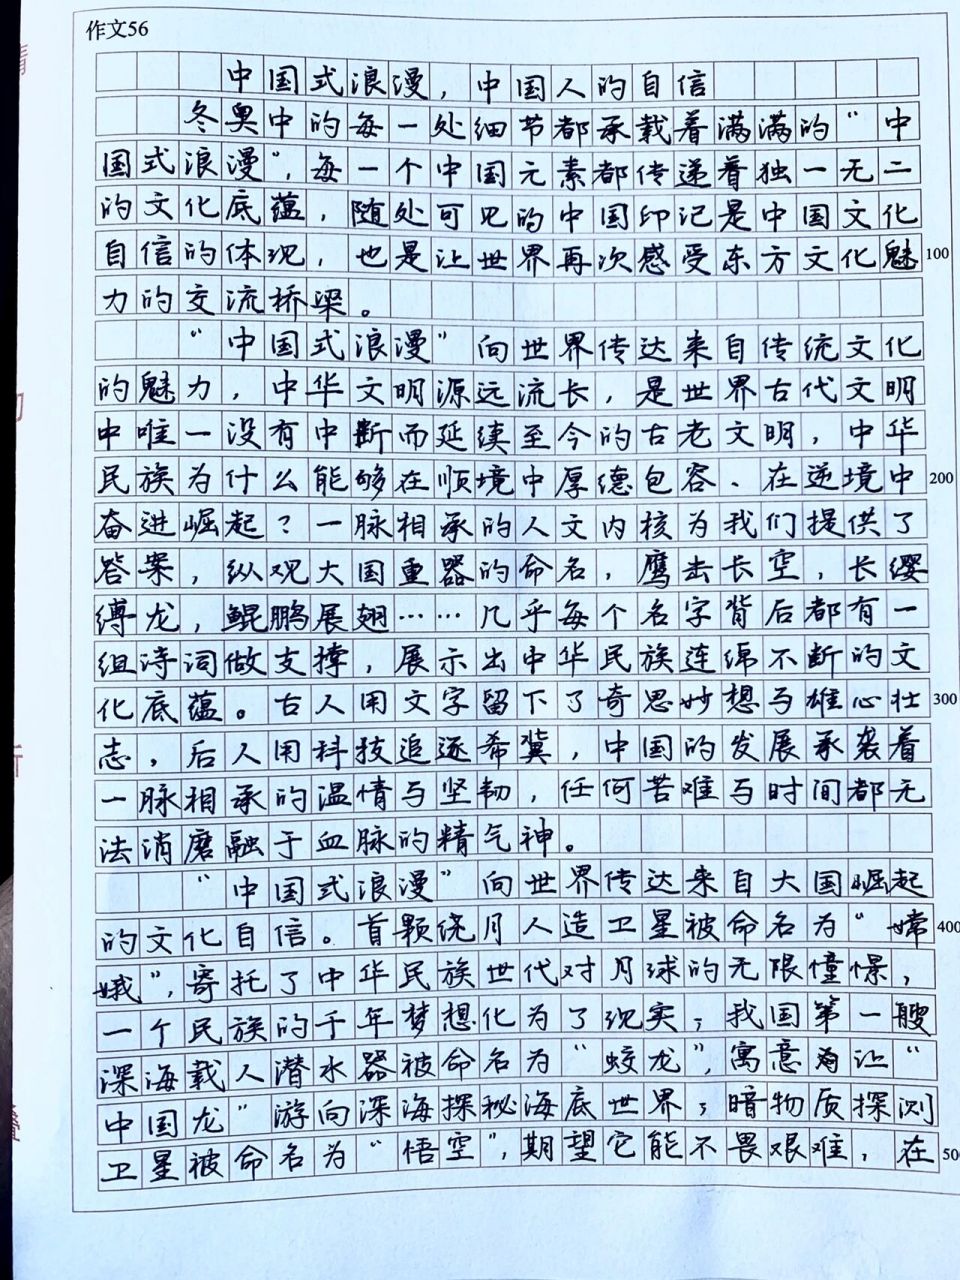 作文56
中国式浪漫，中国人的自信
冬奥中的每一处细节都承载着满满的“中
国式浪漫”，每一个中国元素都传递着独一无二
的文化底蕴，随处可见的中国印记是中国文化
自信的体现，也是让世界再次感受东方文化魅
100
力的交流桥梁。
“中国式浪漫”向世界传达来自传统文化
的魅力，中华文明源远流长，是世界古代文明
中唯一没有中断而延续至今的古老文明，中华
民族为什么能够在顺境中厚德包容、在逆境中
200
奋进崛起？一脉相承的人文内核为我们提供了
答案，纵观大国重器的命名，鹰击长空，长缨
缚龙，鲲鹏展翅……几乎每个名字背后都有一
组诗词做支撑，展示出中华民族连绵不断的文
化底蕴。古人用文字留下了奇思妙想与雄心壮
300
志，后人用科技追逐希冀，中国的发展承袭着
一脉相承的温情与坚韧，任何苦难与时间都无
法消磨融于血脉的精气神。
“中国式浪漫”向世界传达来自大国崛起
的文化自信。首颗绕月人造卫星被命名为“嫦
400
娥”，寄托了中华民族世代对月球的无限憧憬，
一个民族的千年梦想化为了现实；我国第一艘
深海载人潜水器被命名为“蛟龙”，寓意为让“
中国龙”游向深海探秘海底世界；暗物质探测
卫星被命名为“悟空”，期望它能不畏艰难，在